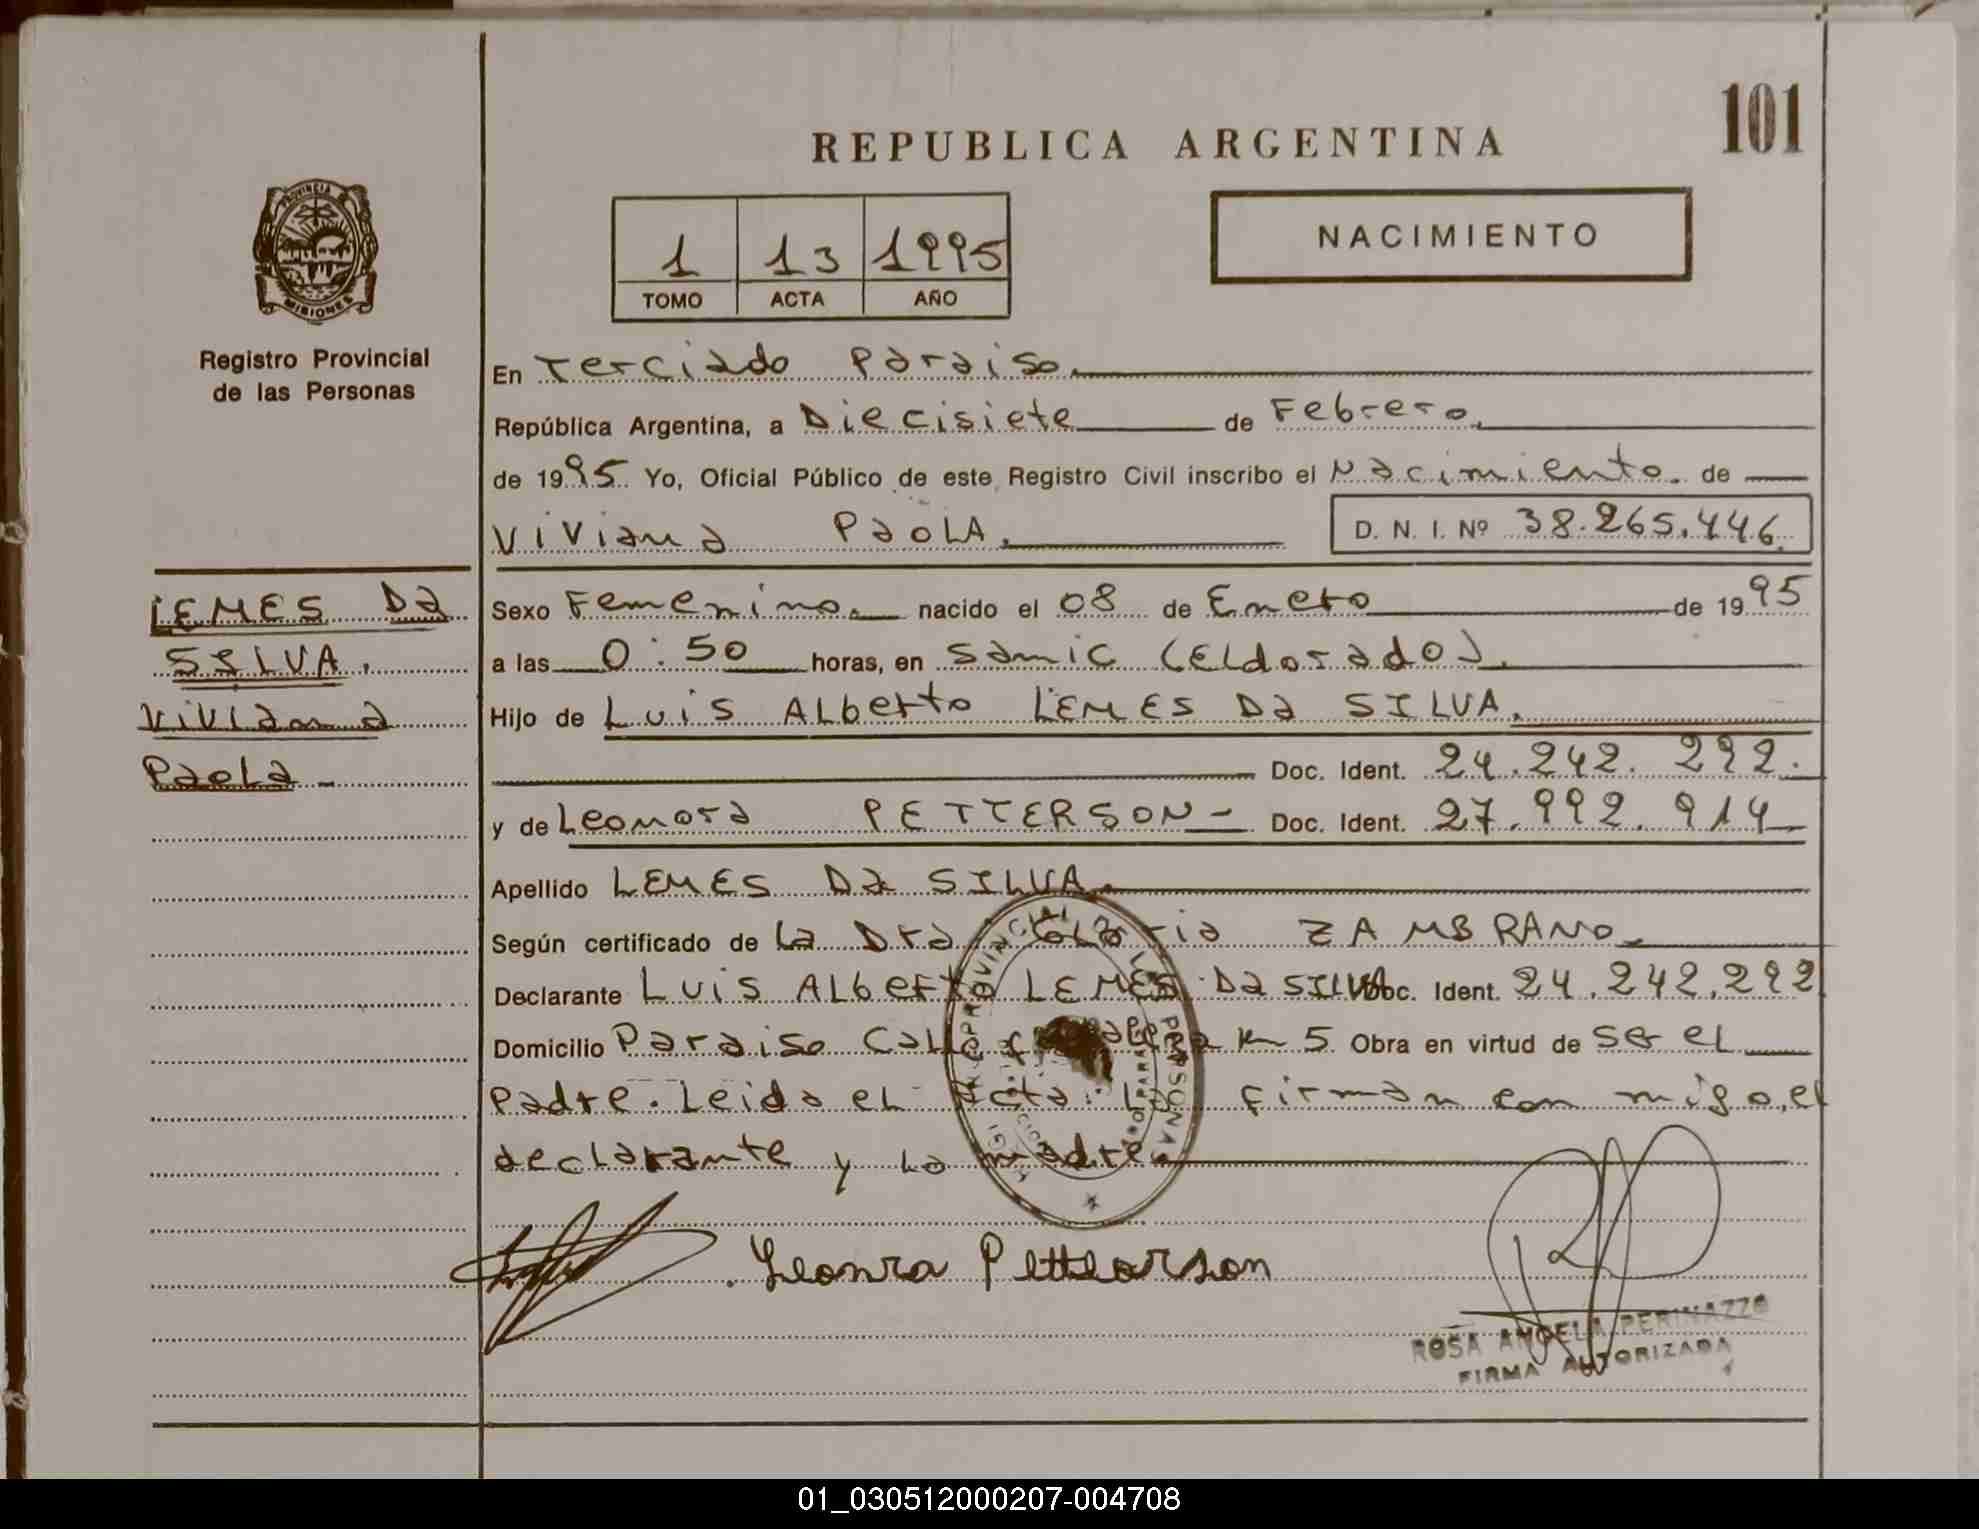 101
REPUBLICA ARGENTINA
NACIMIENTO
1 13 1995
TOMO ACTA AÑO
PROVINCIA
MISIONES
Registro Provincial
de las Personas
En Terciado Paraiso.
República Argentina, a Diecisiete de Febrero
de 1995 Yo, Oficial Público de este Registro Civil inscribo el Nacimiento. de
Viviana PAOLA. D. N. I. Nº 38.265.446.
LEMES Da
SILVA.
Viviana
Paola -
Sexo Femenino. nacido el 08 de Enero de 1995
a las 0:50 horas, en Samic (Eldorado).
Hijo de Luis ALberto LEMES Da SILVA.
Doc. Ident. 24.242.292.
y de Leonora PETTERSON - Doc. Ident. 27.992.914
Apellido LEMES Da SILVA.
Según certificado de La Dra Gloria ZAMBRANO
Declarante Luis ALberto LEMES Da SILVA Doc. Ident. 24.242.292
Domicilio Paraiso Calle Km 5 Obra en virtud de ser el
Padre. Leida el Acta. La firman con migo, el
declarante y La madre.
Leonra Pettearson
ROSA ANGELA PERINAZZO
FIRMA AUTORIZADA
01_030512000207-004708